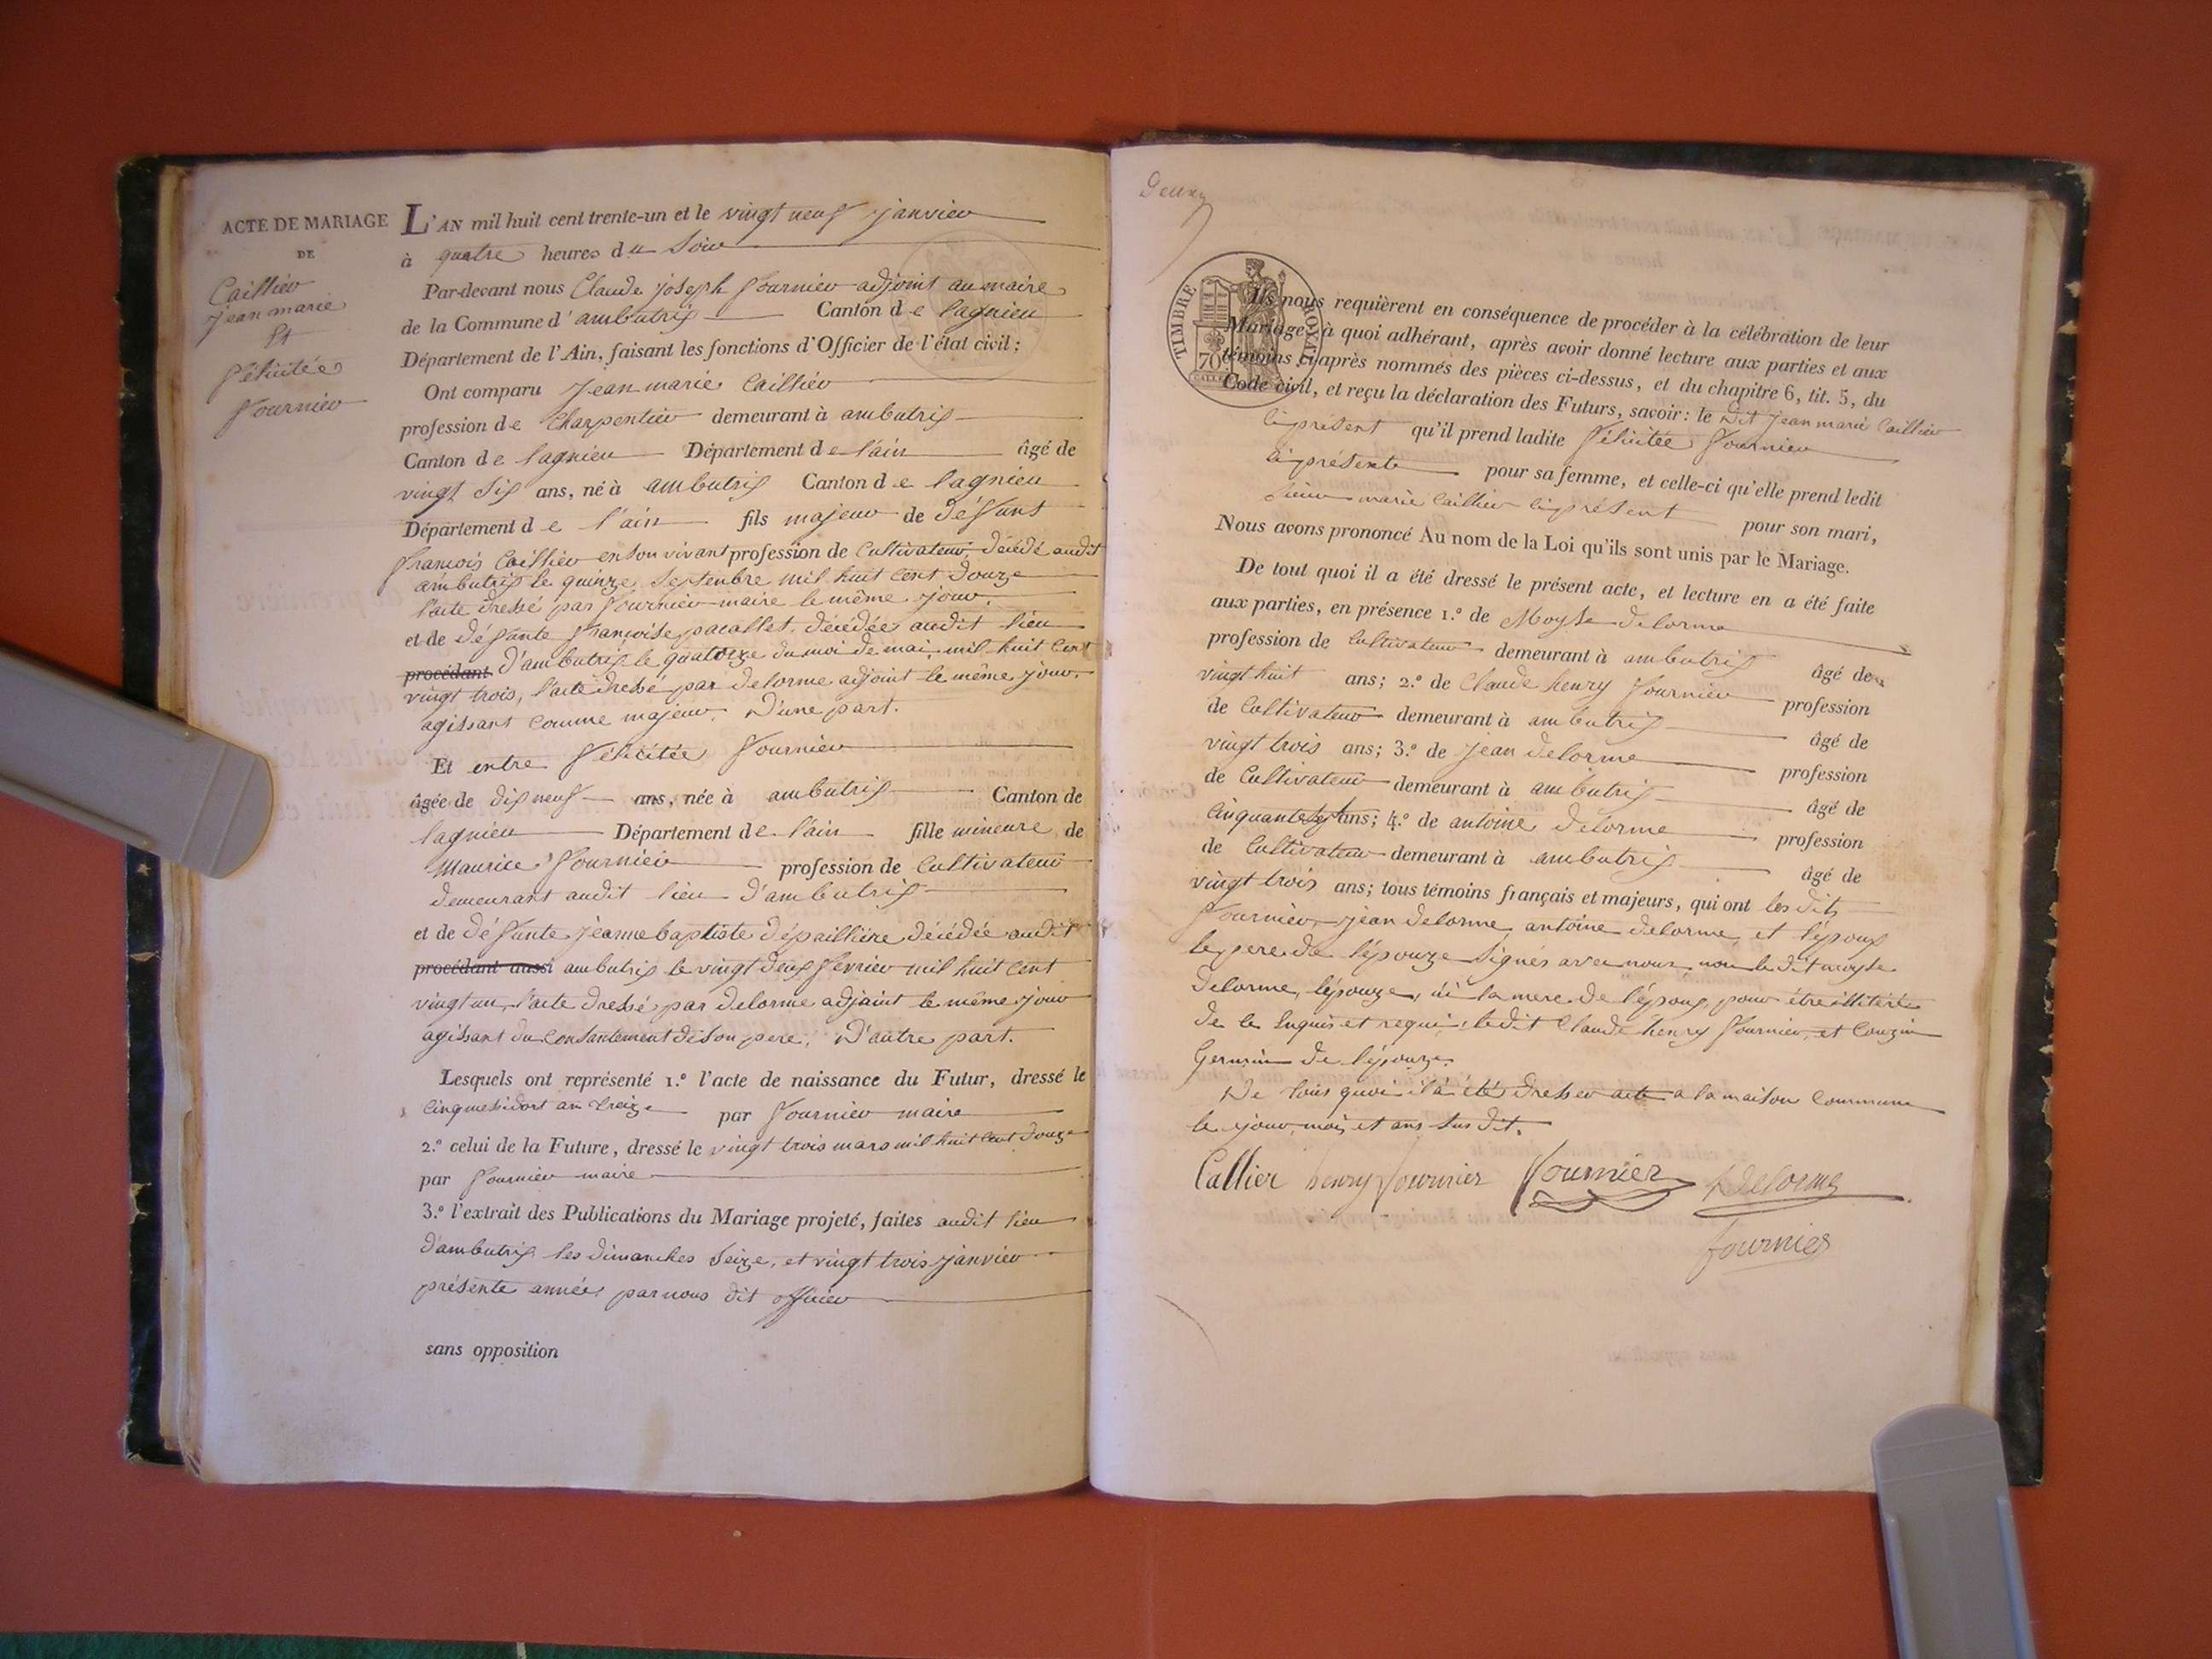 ACTE DE MARIAGE
DE
Caillier
Jean marie
Et
Félicitée
Fournier
L'AN mil huit cent trente-un et le vingt neuf janvier
à quatre heures du Soir
Par-devant nous Claude joseph Fournier adjoint au maire
de la Commune d'ambutrix Canton de lagnieu
Département de l'Ain, faisant les fonctions d'Officier de l'état civil;
Ont comparu Jean marie Caillier
profession de Charpentier demeurant à ambutrix
Canton de lagnieu Département de l'ain âgé de
vingt Six ans, né à ambutrix Canton de lagnieu
Département de l'ain fils majeur de défunt
françois Caillier en Son vivant profession de Cultivateur, décédé audit
ambutrix le quinze Septembre mil huit Cent douze
l'acte dressé par fournier maire le même jour.
et de défunte françoise pacallet décédée audit lieu
procédant d'ambutrix le quatorze du moi de mai mil huit Cent
vingt trois, l'acte dressé par delorme adjoint le même jour.
agissant Comme majeur. D'une part.
Et entre Félicitée Fournier
âgée de dix neuf ans, née à ambutrix Canton de
lagnieu Département de l'ain fille mineure de
Maurice Fournier profession de Cultivateur
demeurant audit lieu d'ambutrix
et de défunte jeanne baptiste dépaillière décédée audit
procédant aussi ambutrix le vingt deux fevrier mil huit Cent
vingt un, l'acte dressé par delorme adjoint le même jour
agissant du Consantement de Son pere, D'autre part.
Lesquels ont représenté 1.º l'acte de naissance du Futur, dressé le
Cinq messidort an treize par fournier maire
2.º celui de la Future, dressé le vingt trois mars mil huit Cent douze
par fournier maire
3.º l'extrait des Publications du Mariage projeté, faites audit lieu
d'ambutrix les dimanches Seize, et vingt trois janvier
présente année, par nous dit officier
sans opposition
Deux
TIMBRE ROYAL
70
Ils nous requièrent en conséquence de procéder à la célébration de leur
Mariage; à quoi adhérant, après avoir donné lecture aux parties et aux
témoins ci-après nommés des pièces ci-dessus, et du chapitre 6, tit. 5, du
Code civil, et reçu la déclaration des Futurs, savoir: le Dit jean marie Caillier
Ci présent qu'il prend ladite Félicitée Fournier
Ci présente pour sa femme, et celle-ci qu'elle prend ledit
marie Caillier Ci présent pour son mari,
Nous avons prononcé Au nom de la Loi qu'ils sont unis par le Mariage.
De tout quoi il a été dressé le présent acte, et lecture en a été faite
aux parties, en présence 1.º de Moyse delorme
profession de Cultivateur demeurant à ambutrix âgé de
vingt huit ans; 2.º de Claude henry fournier profession
de Cultivateur demeurant à ambutrix âgé de
vingt trois ans; 3.º de jean delorme profession
de Cultivateur demeurant à ambutrix âgé de
Cinquante Sept ans; 4.º de antoine delorme profession
de Cultivateur demeurant à ambutrix âgé de
vingt trois ans; tous témoins français et majeurs, qui ont les dits
Fournier, jean delorme, antoine delorme, et l'époux
le pere de l'épouze Signés avec nous non le dit moyse
delorme, l'épouze, ni la mere de l'époux, pour être illiterés
de ce Enquis et requi, ledit Claude henry fournier, et Couzin
Germain de l'épouze.
De tous quoi il a été dresser acte a la maison Commune
le jour, mois et ans Sus dit.
Callier henry fournier Fournier A delorme
fournier